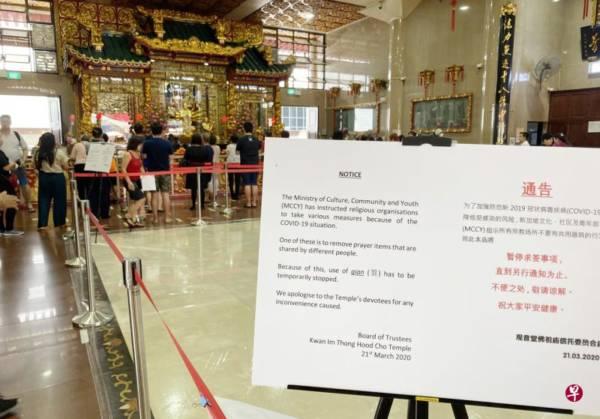 NOTICE
The Ministry of Culture, Community and Youth
(MCCY) has instructed religious organisations
to take various measures because of the
COVID-19 situation.
One of these is to remove prayer items that are
shared by different people.
Because of this, use of qian (签) has to be
temporarily stopped.
We apologise to the Temple's devotees for any
inconvenience caused.
Board of Trustees
Kwan Im Thong Hood Cho Temple
21st March 2020
通告
为了加强防御 2019 冠状病毒疾病(COVID-19
降低感染的风险，新加坡文化、社区及青年部
(MCCY)指示所有宗教场所不要有共用器具的行
因此本庙将
暂停求签事项，
直到另行通知为止。
不便之处，敬请谅解。
祝大家平安健康。
观音堂佛祖庙信托委员会
21.03.2020
早